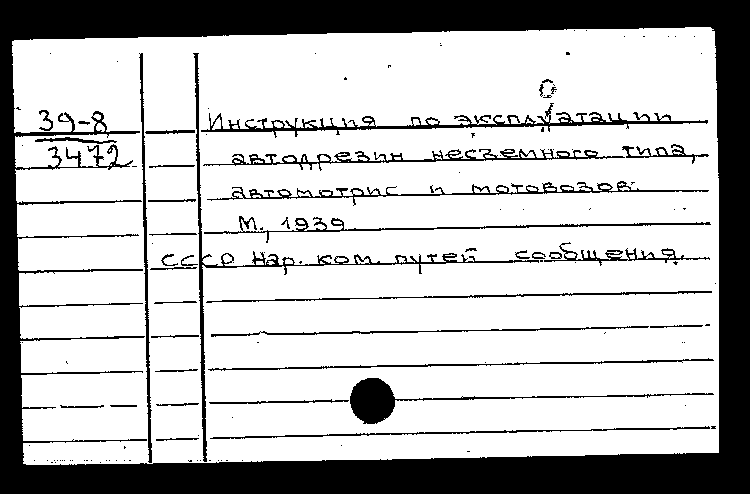 39-8
3472
Инструкция по эксплуатации
автодрезин несъемного типа,
автомотрис и мотовозов.
М., 1939
СССР Нар. ком. путей сообщения.